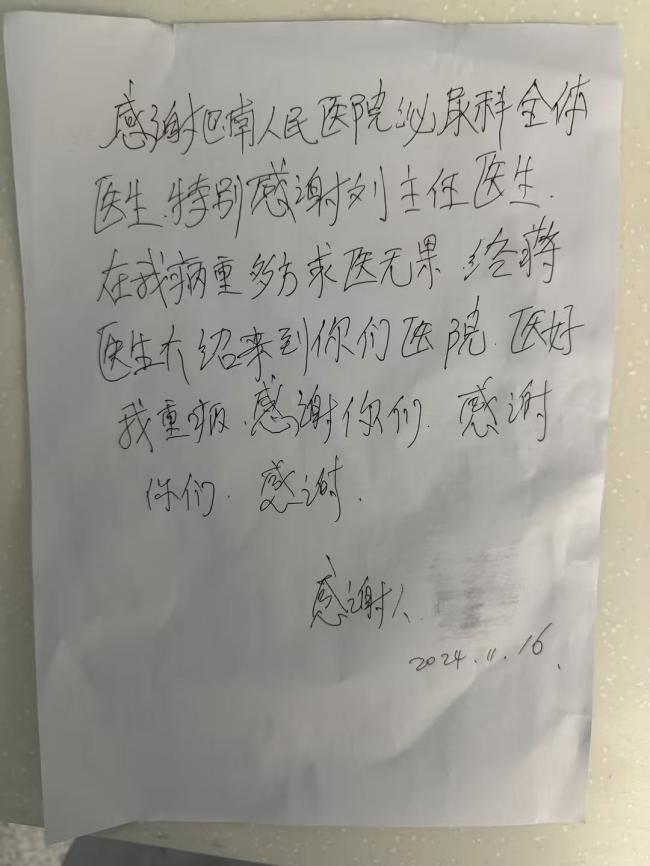 感谢巴南人民医院泌尿科全体
医生.特别感谢刘主任医生.
在我病重多方求医无果 经蒋
医生介绍来到你们医院.医好
我重病.感谢你们.感谢
你们.感谢.
感谢人.
2024.11.16.